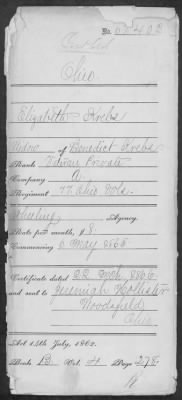 No.
Ohio.
Elizabeth Krebs
Widow of Benedict Krebs
Rank Private
Company A.
Regiment 77 Ohio Vols.
Wheeling Agency.
Rate per month, $8
Commencing 6 May 1865
Certificate dated 22 1866
and sent to Jeremiah Hollister
Woodsfield
Ohio
Act 14th July, 1862.
Book B Vol. 4 Page 278